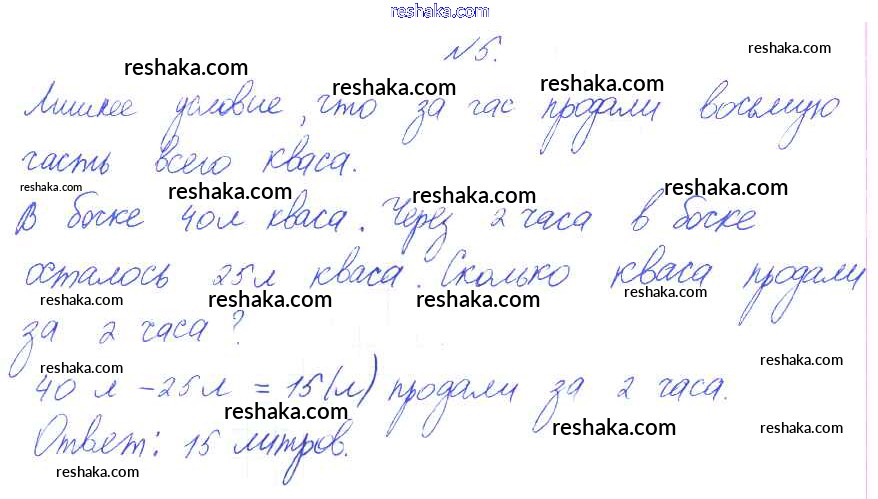 reshaka.com
№5.
reshaka.com
reshaka.com
reshaka.com
reshaka.com
Лишнее условие, что за час продали восьмую
часть всего кваса.
reshaka.com
reshaka.com
reshaka.com
reshaka.com
В бочке 40л кваса. Через 2 часа в бочке
осталось 25л кваса. Сколько кваса продали
reshaka.com
reshaka.com
reshaka.com
reshaka.com
за 2 часа?
reshaka.com
reshaka.com
40 л - 25 л = 15 (л) продали за 2 часа.
reshaka.com
reshaka.com
reshaka.com
Ответ: 15 литров.
reshaka.com